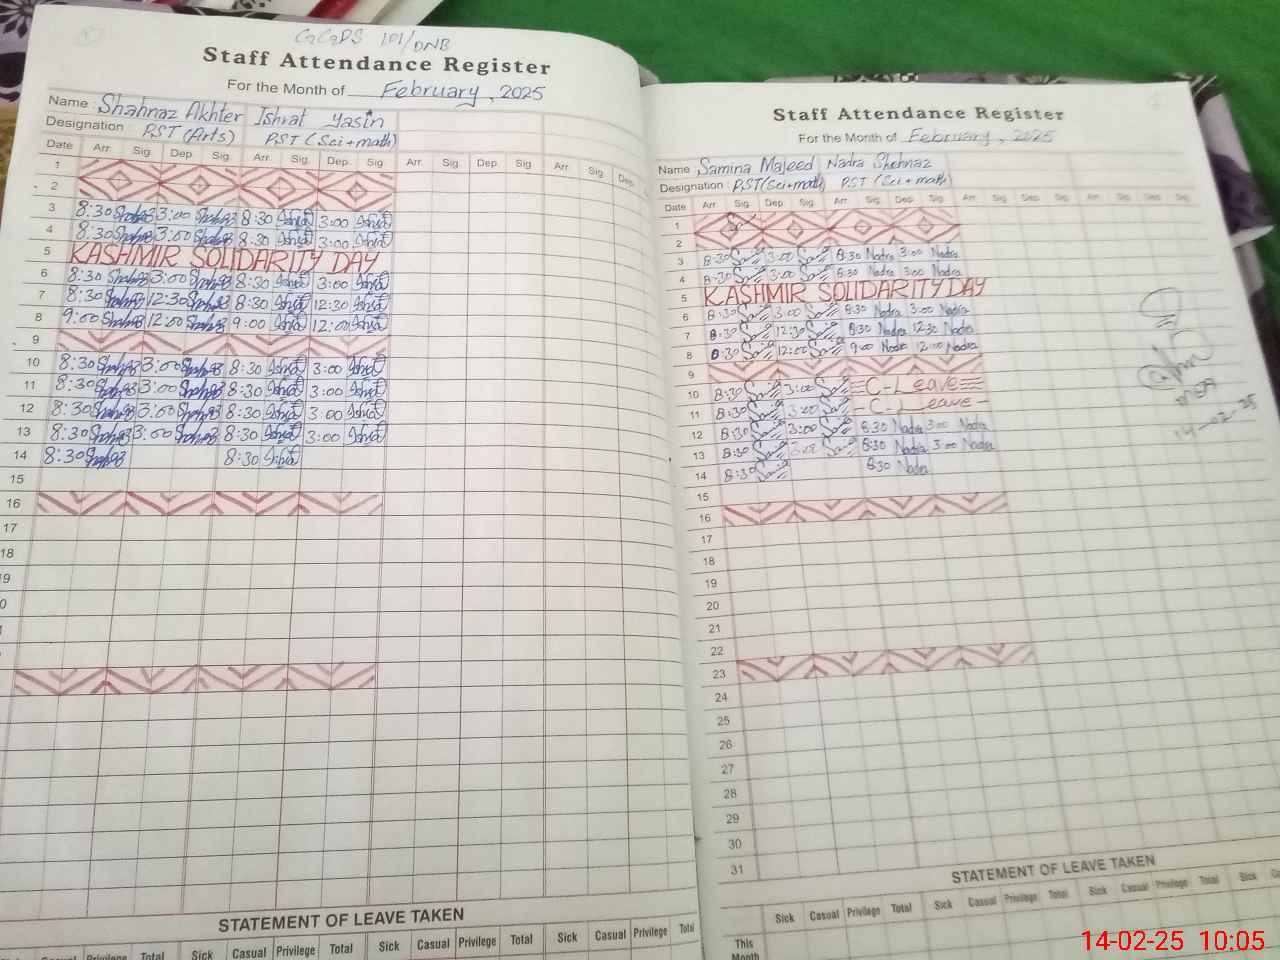 Staff Attendance Register
For the Month of February, 2025
Name : Shahnaz Akhter Ishrat Yasin
Designation : PST (Arts) PST (Sci+math)
Date Arr. Sig. Dep. Sig. Arr. Sig. Dep. Sig. Arr. Sig. Dep. Sig. Arr. Sig. Dep.
1
2
3 8:30 3:00 8:30 3:00
4 8:30 3:00 8:30 3:00
5 KASHMIR SOLIDARITY DAY
6 8:30 3:00 8:30 3:00
7 8:30 12:30 8:30 12:30
8 9:00 12:00 9:00 12:00
9
10 8:30 3:00 8:30 3:00
11 8:30 3:00 8:30 3:00
12 8:30 3:00 8:30 3:00
13 8:30 3:00 8:30 3:00
14 8:30 8:30
15
16
17
18
STATEMENT OF LEAVE TAKEN
Casual Privilege Total Sick Casual Privilege Total Sick Casual Privilege Total Sick Casual Privilege
Staff Attendance Register
For the Month of February, 2025
Name : Samina Majeed Nadra Shehnaz
Designation : PST (Sci+math) PST (Sci+math)
Date Arr. Sig. Dep. Sig. Arr. Sig. Dep. Sig. Arr. Sig. Dep. Sig. Arr. Sig.
1
2
3 8:30 3:00 8:30 Nadra 3:00 Nadra
4 8:30 3:00 8:30 Nadra 3:00 Nadra
5 KASHMIR SOLIDARITY DAY
6 8:30 3:00 8:30 Nadra 3:00 Nadra
7 8:30 12:30 8:30 Nadra 12:30 Nadra
8 12:00 9:00 Nadra 12:00 Nadra
9
10 8:30 3:00 C-Leave
11 8:30 3:00 - C-Leave -
12 8:30 3:00 8:30 Nadra 3:00 Nadra
13 8:30 3:00 8:30 Nadra 3:00 Nadra
14 8:30 8:30 Nadra
15
16
17
18
19
20
21
22
23
24
25
26
27
28
29
30
31
14-02-25
STATEMENT OF LEAVE TAKEN
Sick Casual Privilege Total Sick Casual Privilege Total Sick
This Month
14-02-25 10:05